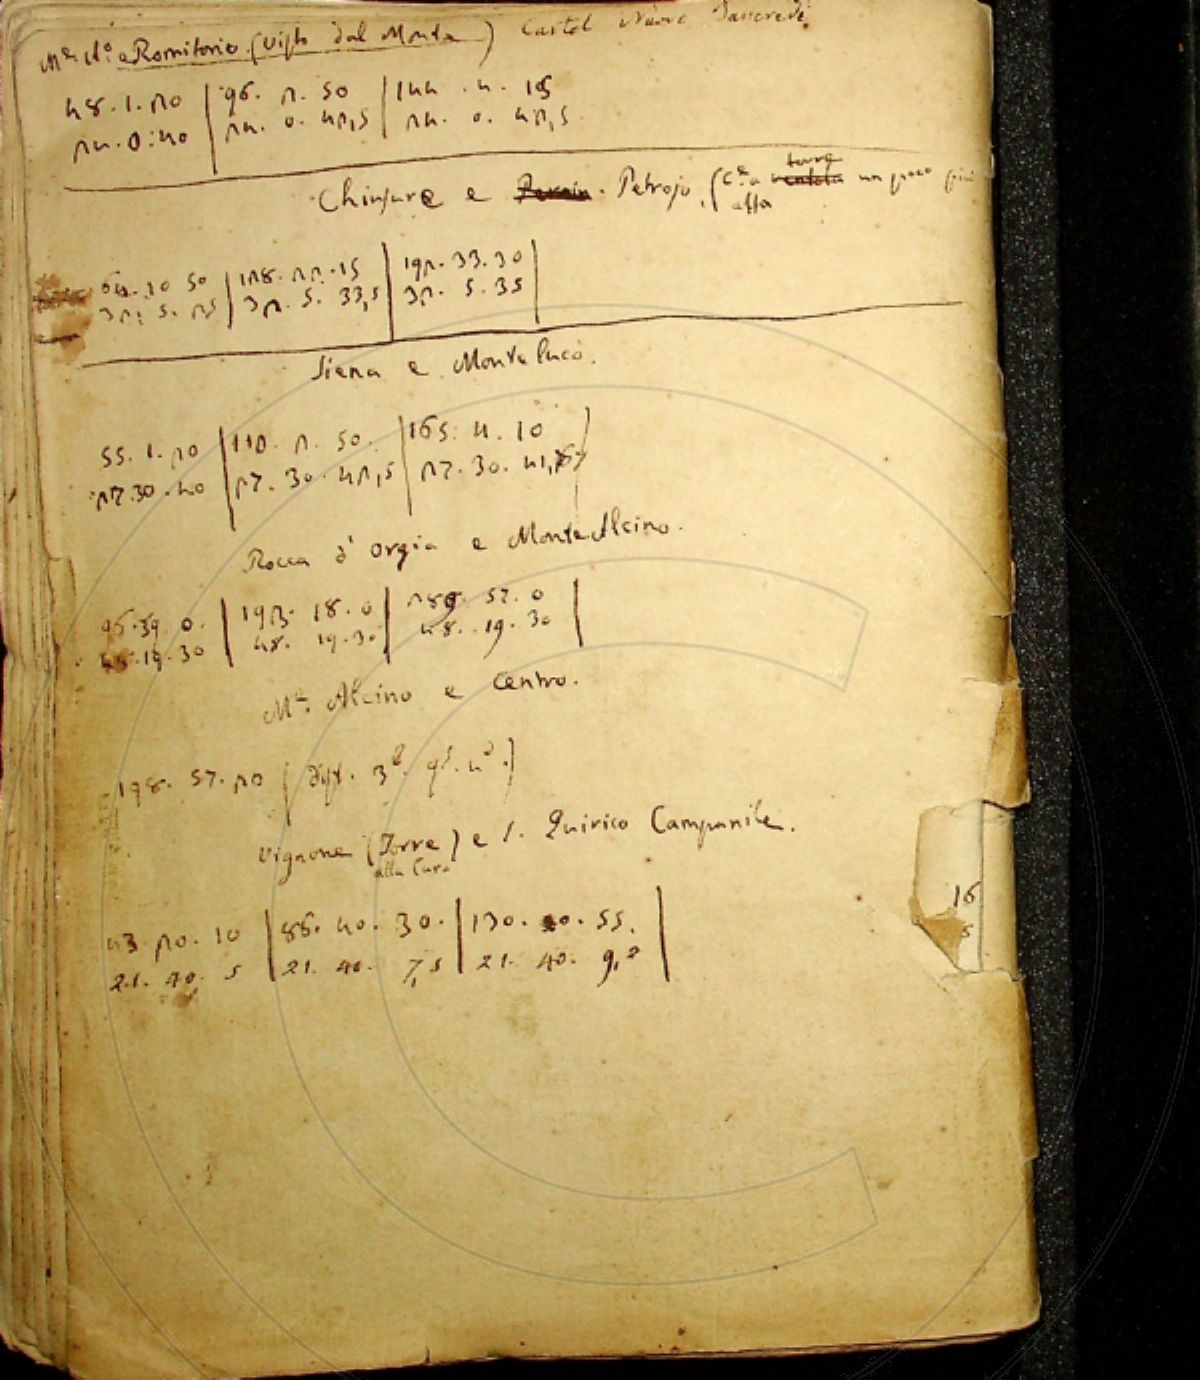 Mte Alo e Romitorio (visto dal Monte) Castel Nuovo Tancredi
48. 1. 20 | 96. 2. 50 | 144. 4. 15
24. 0. 40 | 24. 0. 42,5 | 24. 0. 42,5
Chiusure e Petrojo. (Ca a torre un poco più
alta
64. 10 50 | 128. 22. 15 | 192. 33. 30
32. 5. 25 | 32. 5. 33,5 | 32. 5. 35
Siena e Monteluco.
55. 1. 20 | 110. 2. 50. | 165. 4. 10
27. 30. 40 | 27. 30. 42,5 | 27. 30. 41,7
Rocca d'Orgia e Monte Alcino.
96. 39. 0. | 193. 18. 0 | 289. 57. 0
48. 19. 30 | 48. 19. 30 | 48. 19. 30
Me. Alcino e Centro.
198. 57. 20
Vignone (Torre) e S. Quirico Campanile.
alla Cura
43. 20. 10 | 86. 40. 30. | 130. 0. 55.
21. 40. 5 | 21. 40. 7,5 | 21. 40. 9,2
16